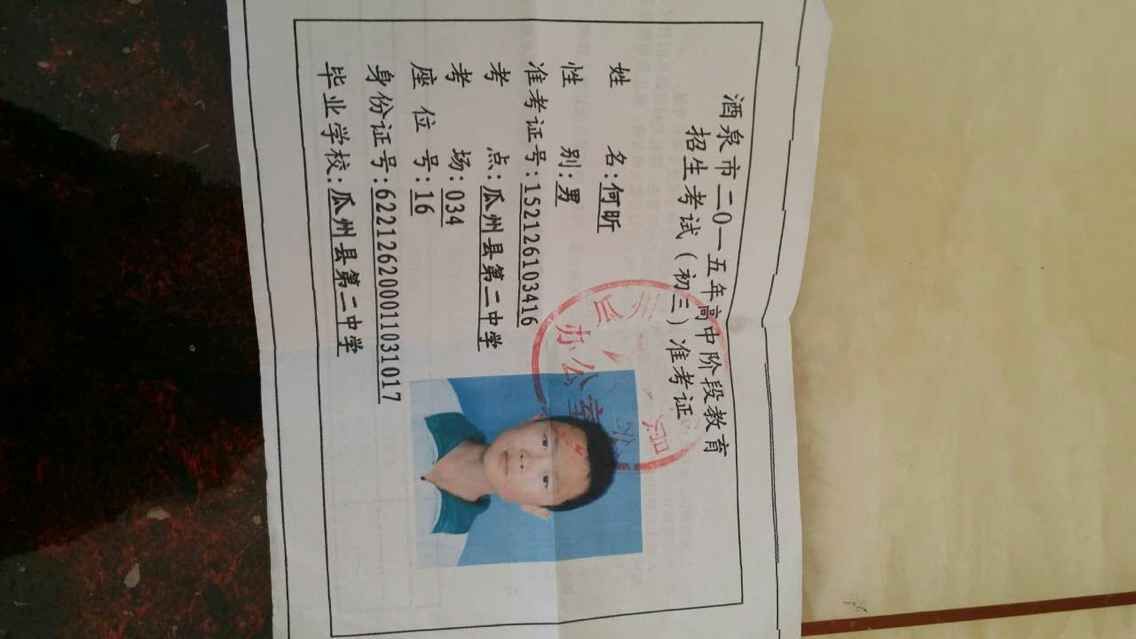 酒泉市二0一五年高中阶段教育
招生考试（初三）准考证
姓名：何昕
性别：男
准考证号：152126103416
考点：瓜州县第二中学
考场：034
座位号：16
身份证号：622126200011031017
毕业学校：瓜州县第二中学
办公室